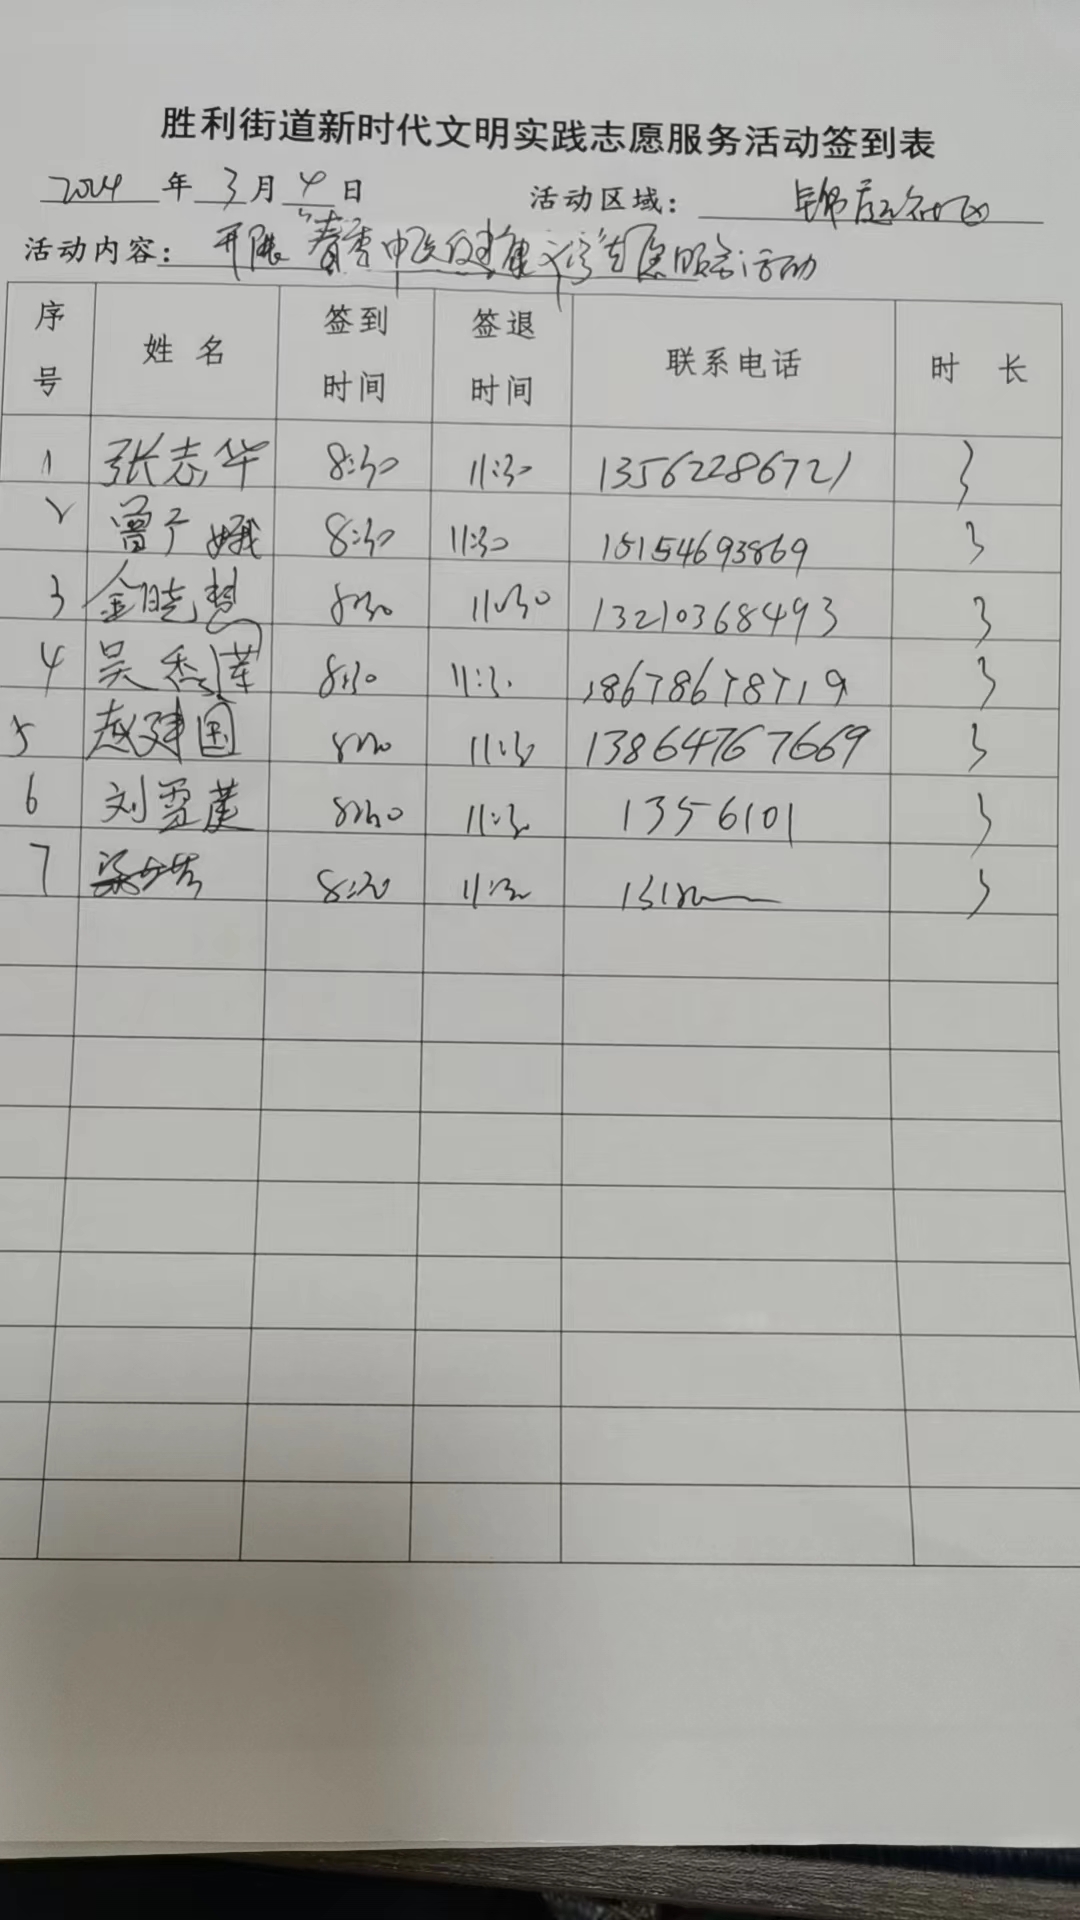 胜利街道新时代文明实践志愿服务活动签到表
2024 年 3 月 4 日 活动区域: 锦
活动内容: 开展"春季中医 健康 活动
序号 姓名 签到时间 签退时间 联系电话 时长
1 张志华 8:30 11:30 13562286721 3
2 曾广娥 8:30 11:30 15154693869 3
3 金晓慧 8:30 11:30 13210368493 3
4 吴秀莲 8:30 11:30 18678678719 3
5 赵建国 8:30 11:30 13864767669 3
6 刘雪莲 8:30 11:30 1356101 3
7 梁 8:30 11:30 3